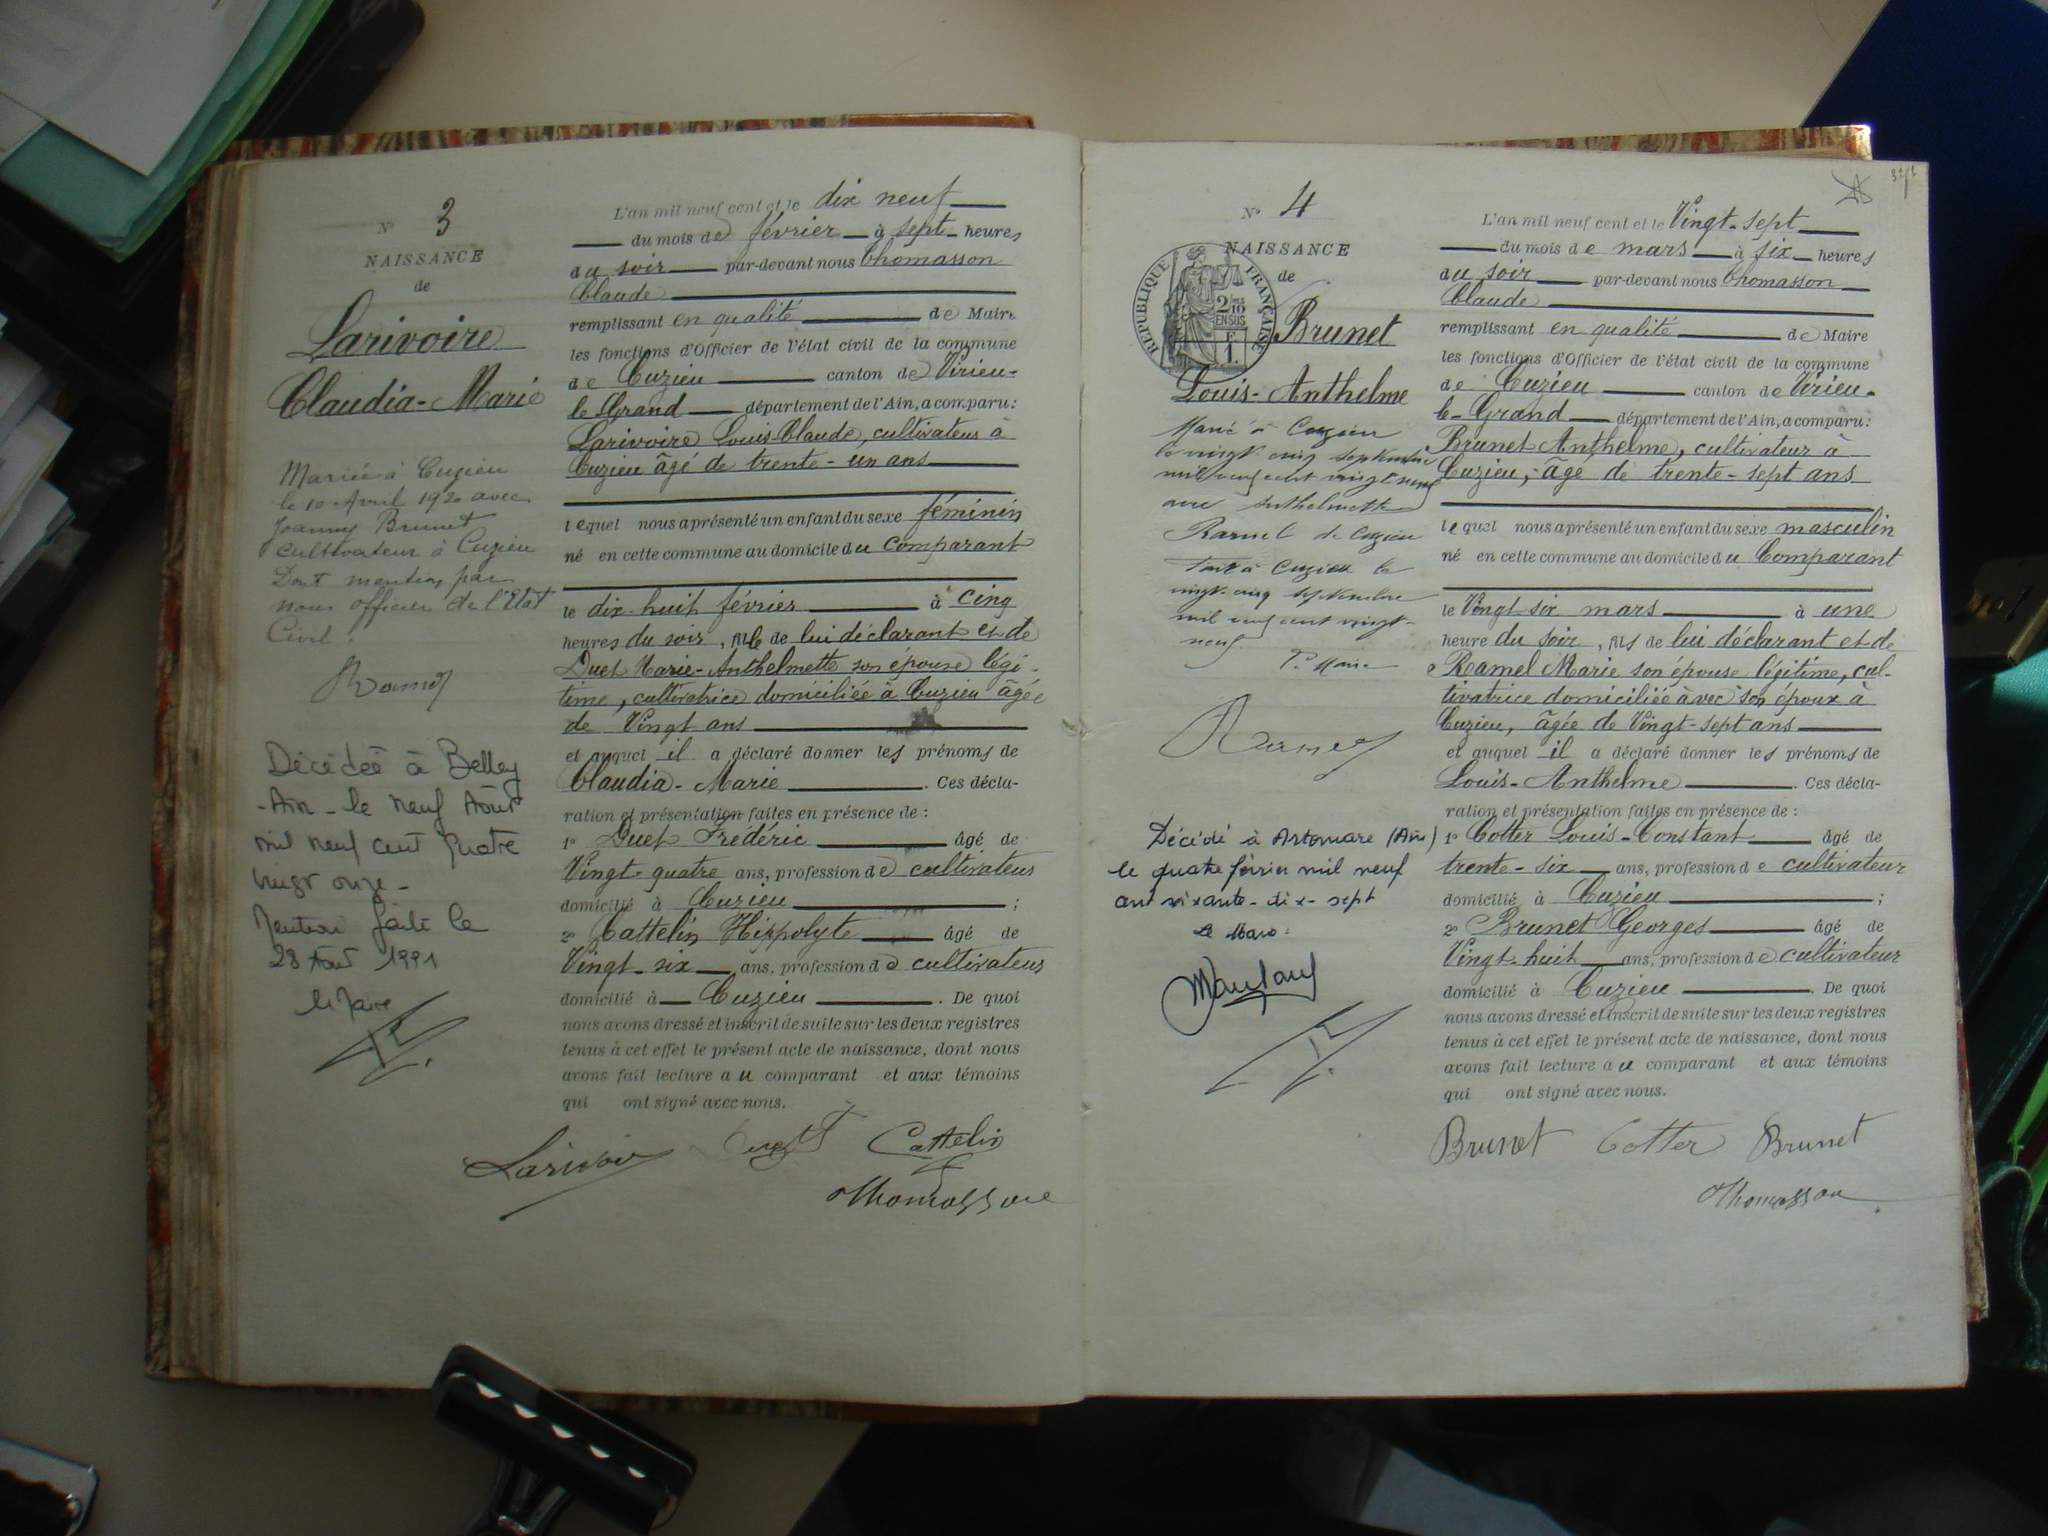 N° 3
NAISSANCE
de
Larivoire
Claudia-Marie
Mariée à Cuzieu
le 10 Avril 1920 avec
Joanny Brunet
cultivateur à Cuzieu
Dont mention par
nous officier de l'Etat
Civil.
Décédée à Belley
-Ain- le neuf Août
mil neuf cent quatre
vingt onze-
Mention faite le
28 Août 1991
le Maire
L'an mil neuf cent et le dix neuf
du mois de février à sept heures
du soir par-devant nous Thomasson
Claude
remplissant en qualité de Maire
les fonctions d'Officier de l'état civil de la commune
de Cuzieu canton de Virieu-
le Grand département de l'Ain, a comparu:
Larivoire Louis Claude, cultivateur à
Cuzieu âgé de trente-un ans
lequel nous a présenté un enfant du sexe féminin
né en cette commune au domicile du comparant
le dix-huit février à cinq
heures du soir, fille de lui déclarant et de
Duet Marie-Anthelmette son épouse légi-
time, cultivatrice domiciliée à Cuzieu âgée
de Vingt ans
et auquel il a déclaré donner les prénoms de
Claudia-Marie. Ces décla-
ration et présentation faites en présence de:
1° Duet Frédéric âgé de
Vingt-quatre ans, profession de cultivateur
domicilié à Cuzieu;
2° Cattelin Hippolyte âgé de
Vingt-six ans, profession de cultivateur
domicilié à Cuzieu. De quoi
nous avons dressé et inscrit de suite sur les deux registres
tenus à cet effet le présent acte de naissance, dont nous
avons fait lecture au comparant et aux témoins
qui ont signé avec nous.
Larivoire Cattelin
Thomasson
N° 4
NAISSANCE
de
REPUBLIQUE FRANÇAISE
2/10 EN SUS
1 F
Brunet
Louis-Anthelme
Marié à Cuzieu
le vingt cinq septembre
mil neuf cent vingt neuf
avec Anthelmette
Ramel de Cuzieu
Fait à Cuzieu le
vingt-cinq septembre
mil neuf cent vingt-
neuf.
Le Maire
Décédé à Artemare (Ain)
le quatre février mil neuf
cent soixante-dix-sept
Le Maire:
L'an mil neuf cent et le Vingt-sept
du mois de mars à six heures
du soir par-devant nous Thomasson
Claude
remplissant en qualité de Maire
les fonctions d'Officier de l'état civil de la commune
de Cuzieu canton de Virieu-
le-Grand département de l'Ain, a comparu:
Brunet Anthelme, cultivateur à
Cuzieu, âgé de trente-sept ans
lequel nous a présenté un enfant du sexe masculin
né en cette commune au domicile du Comparant
le Vingt six mars à une
heure du soir, fils de lui déclarant et de
Ramel Marie son épouse légitime, cul-
tivatrice domiciliée avec son époux à
Cuzieu, âgée de Vingt-sept ans
et auquel il a déclaré donner les prénoms de
Louis-Anthelme. Ces décla-
ration et présentation faites en présence de:
1° Cotter Louis-Constant âgé de
trente-six ans, profession de cultivateur
domicilié à Cuzieu;
2° Brunet Georges âgé de
Vingt-huit ans, profession de cultivateur
domicilié à Cuzieu. De quoi
nous avons dressé et inscrit de suite sur les deux registres
tenus à cet effet le présent acte de naissance, dont nous
avons fait lecture au comparant et aux témoins
qui ont signé avec nous.
Brunet Cotter Brunet
Thomasson